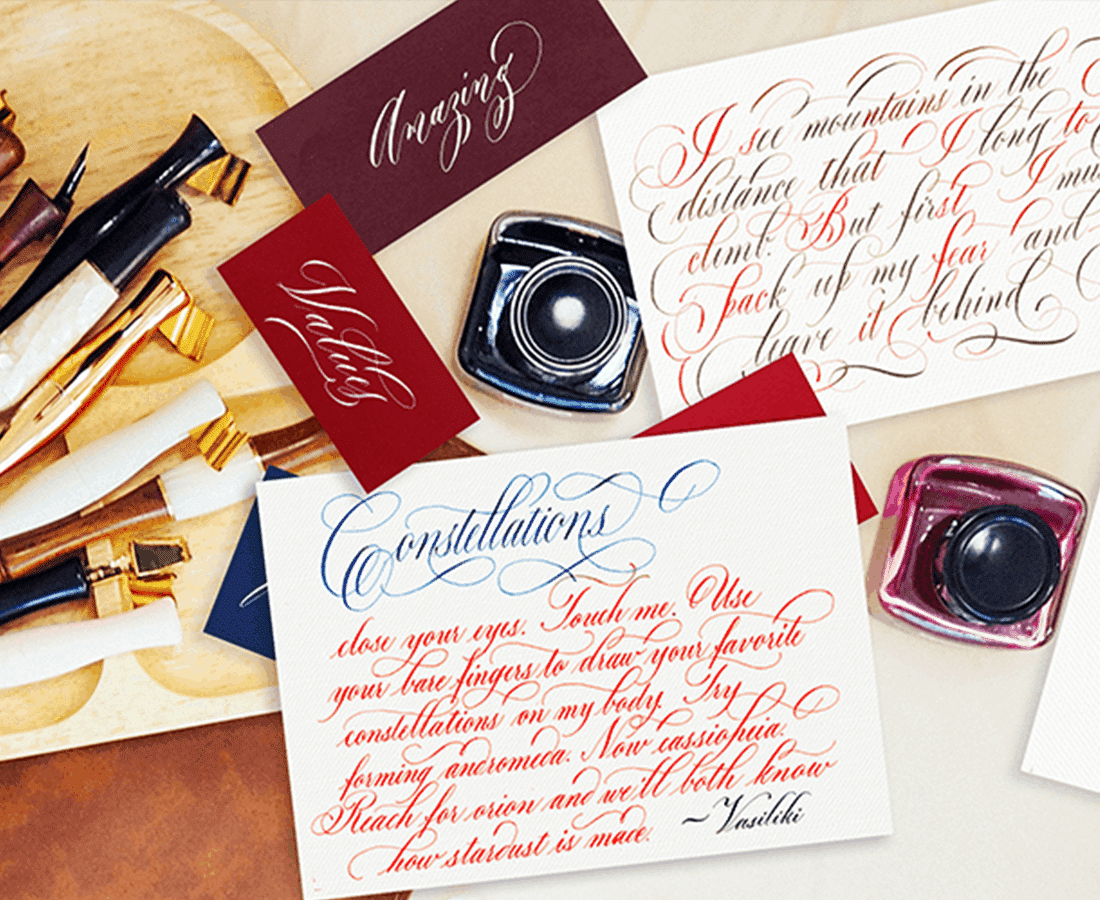 Amazing
I see mountains in the
distance that I long to
climb. But first I mus
pack up my fear and
leave it behind
Values
Constellations
close your eyes. Touch me. Use
your bare fingers to draw your favorite
constellations on my body. Try
forming andromeda. Now cassiopeia.
Reach for orion and we'll both know
how stardust is made.
~Vasiliki